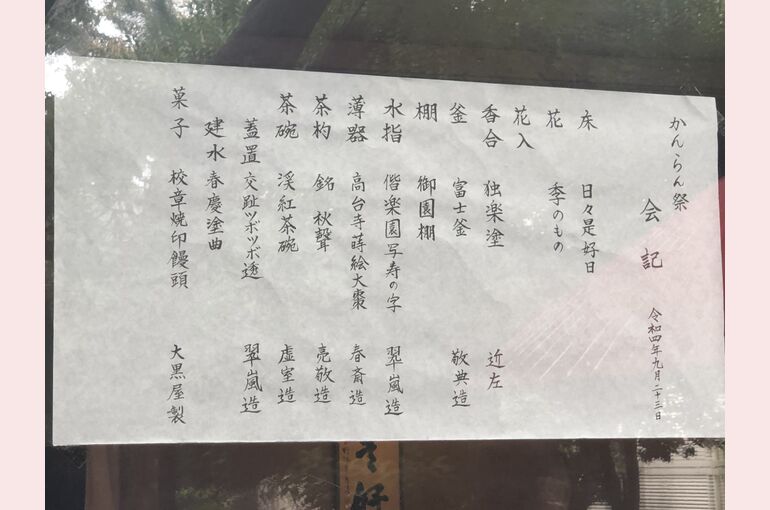 かんらん祭
会記
令和四年九月二十三日
床 日々是好日
花 季のもの
花入
香合 独楽塗 近左
釜 富士釜 敬典造
棚 御園棚
水指 偕楽園写寿の字 翠嵐造
薄器 高台寺蒔絵大棗 春斎造
茶杓 銘 秋聲 亮敬造
茶碗 渓紅茶碗 虚室造
蓋置 交趾ツボツボ透 翠嵐造
建水 春慶塗曲
菓子 校章焼印饅頭 大黒屋製